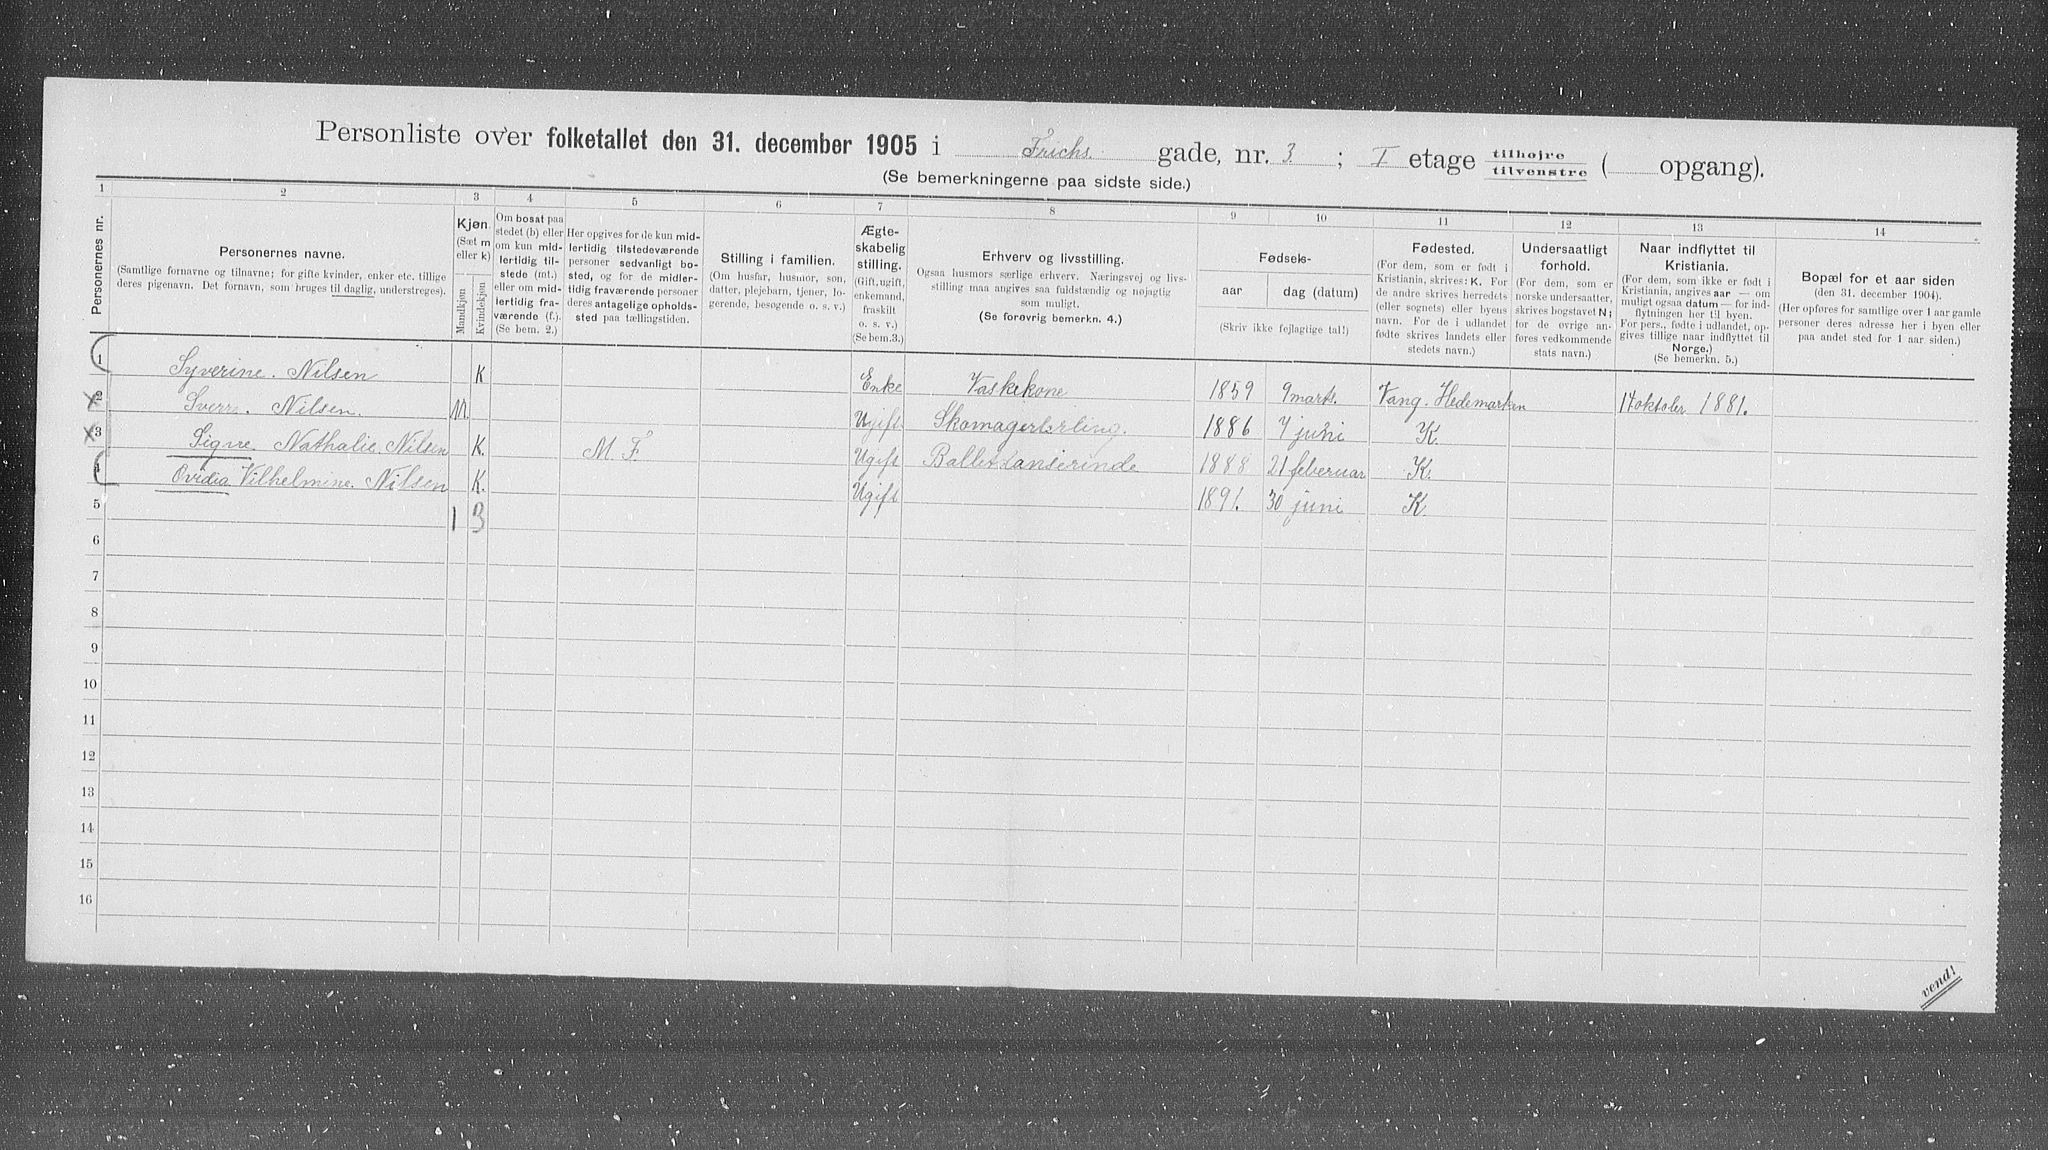 Personliste over folketallet den 31. december 1905 i Frichs gade, nr. 3 ; I etage tilhøjre tilvenstre ( opgang).
(Se bemerkningerne paa sidste side.)
1 2 3 4 5 6 7 8 9 10 11 12 13 14
Personernes nr.
Personernes navne.
(Samtlige fornavne og tilnavne; for gifte kvinder, enker etc. tillige
deres pigenavn. Det fornavn, som bruges til daglig, understreges).
Kjøn.
(Sæt m
eller k)
Mandkjøn
Kvindekjøn
Om bosat paa
stedet (b) eller
om kun mid-
lertidig til-
stede (mt.)
eller om mid-
lertidig fra-
værende (f.).
(Se bem. 2.)
Her opgives for de kun mid-
lertidig tilstedeværende
personer sedvanligt bo-
sted, og for de midler-
tidig fraværende personer
deres antagelige opholds-
sted paa tællingstiden.
Stilling i familien.
(Om husfar, husmor, søn,
datter, plejebarn, tjener, lo-
gerende, besøgende o. s. v.)
Ægte-
skabelig
stilling.
(Gift, ugift,
enkemand,
fraskilt
o. s. v.)
(Se bem.3.)
Erhverv og livsstilling.
Ogsaa husmors særlige erhverv. Næringsvej og livs-
stilling maa angives saa fuldstændig og nøjagtig
som muligt.
(Se forøvrig bemerkn. 4.)
Fødsels-
aar dag (datum)
(Skriv ikke fejlagtige tal!)
Fødested.
(For dem, som er født i
Kristiania, skrives: K. For
de andre skrives herredets
(eller sognets) eller byens
navn. For de i udlandet
fødte skrives landets eller
stedets navn.)
Undersaatligt
forhold.
(For dem, som er
norske undersaatter,
skrives bogstavet N;
for de øvrige an-
føres vedkommende
stats navn.)
Naar indflyttet til
Kristiania.
(For dem, som ikke er født i
Kristiania, angives aar — om
muligt ogsaa datum — for ind-
flytningen her til byen.
For pers., fødte i udlandet, op-
gives tillige naar indflyttet til
Norge.)
(Se bemerkn. 5.)
Bopæl for et aar siden
(den 31. december 1904).
(Her opføres for samtlige over 1 aar gamle
personer deres adresse her i byen eller
paa andet sted for 1 aar siden.)
1 Syverine. Nilsen K Enke Vaskekone 1859 9 marts. Vang. Hedemarken 14 oktober 1881.
2 Sverr. Nilsen. M. Ugift Skomagerlærling. 1886 7 juni K.
3 Signe Nathalie. Nilsen K. M F. Ugift Balletdanserinde 1888 21 februar K.
4 Ovidia Vilhelmine. Nilsen K. Ugift 1891. 30 juni K.
5 1 3
6
7
8
9
10
11
12
13
14
15
16
vend!